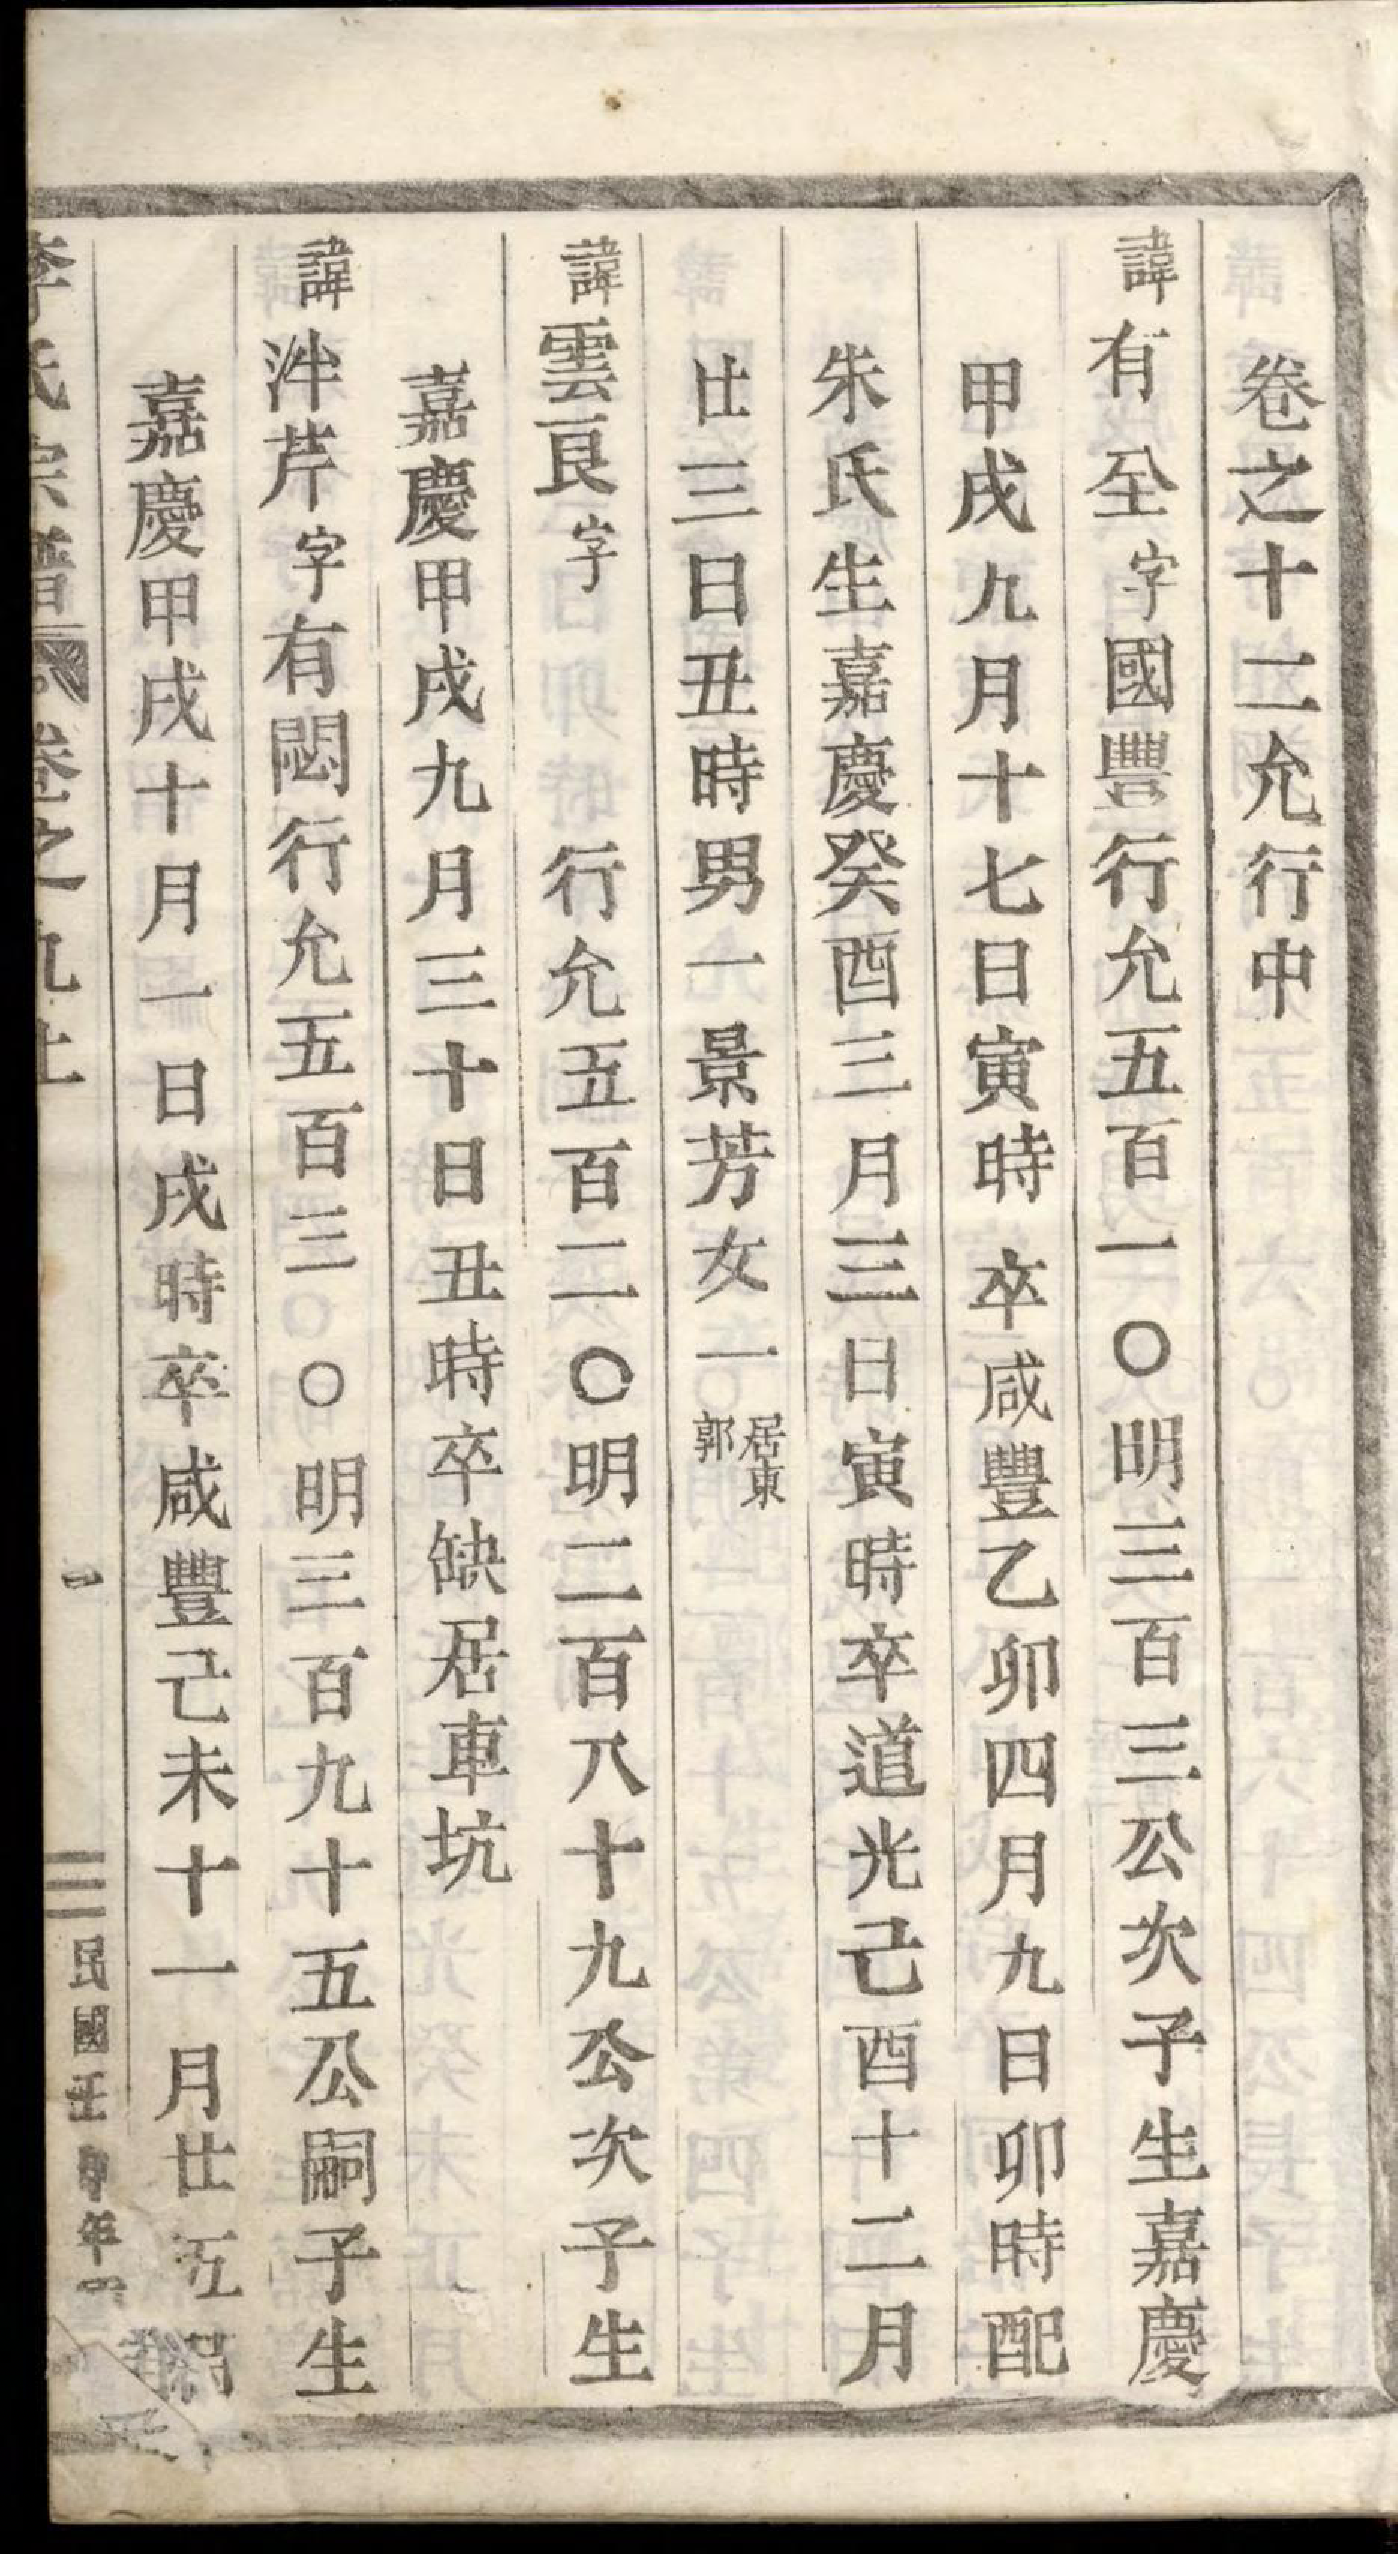 卷之十二允行中
諱有全字國豐行允五百一〇明三百三公次子生嘉慶
甲戌九月十七日寅時卒咸豐乙卯四月九日卯時配
朱氏生嘉慶癸酉三月三日寅時卒道光己酉十二月
廿三日丑時男一景芳女一居東郭
諱雲艮字行允五百二〇明二百八十九公次子生
嘉慶甲戌九月三十日丑時卒缺居車坑
諱泮芹字有閟行允五百三〇明三百九十五公嗣子生
嘉慶甲戌十月一日戌時卒咸豐己未十一月廿五
李氏宗譜卷之九上
一
民國壬年